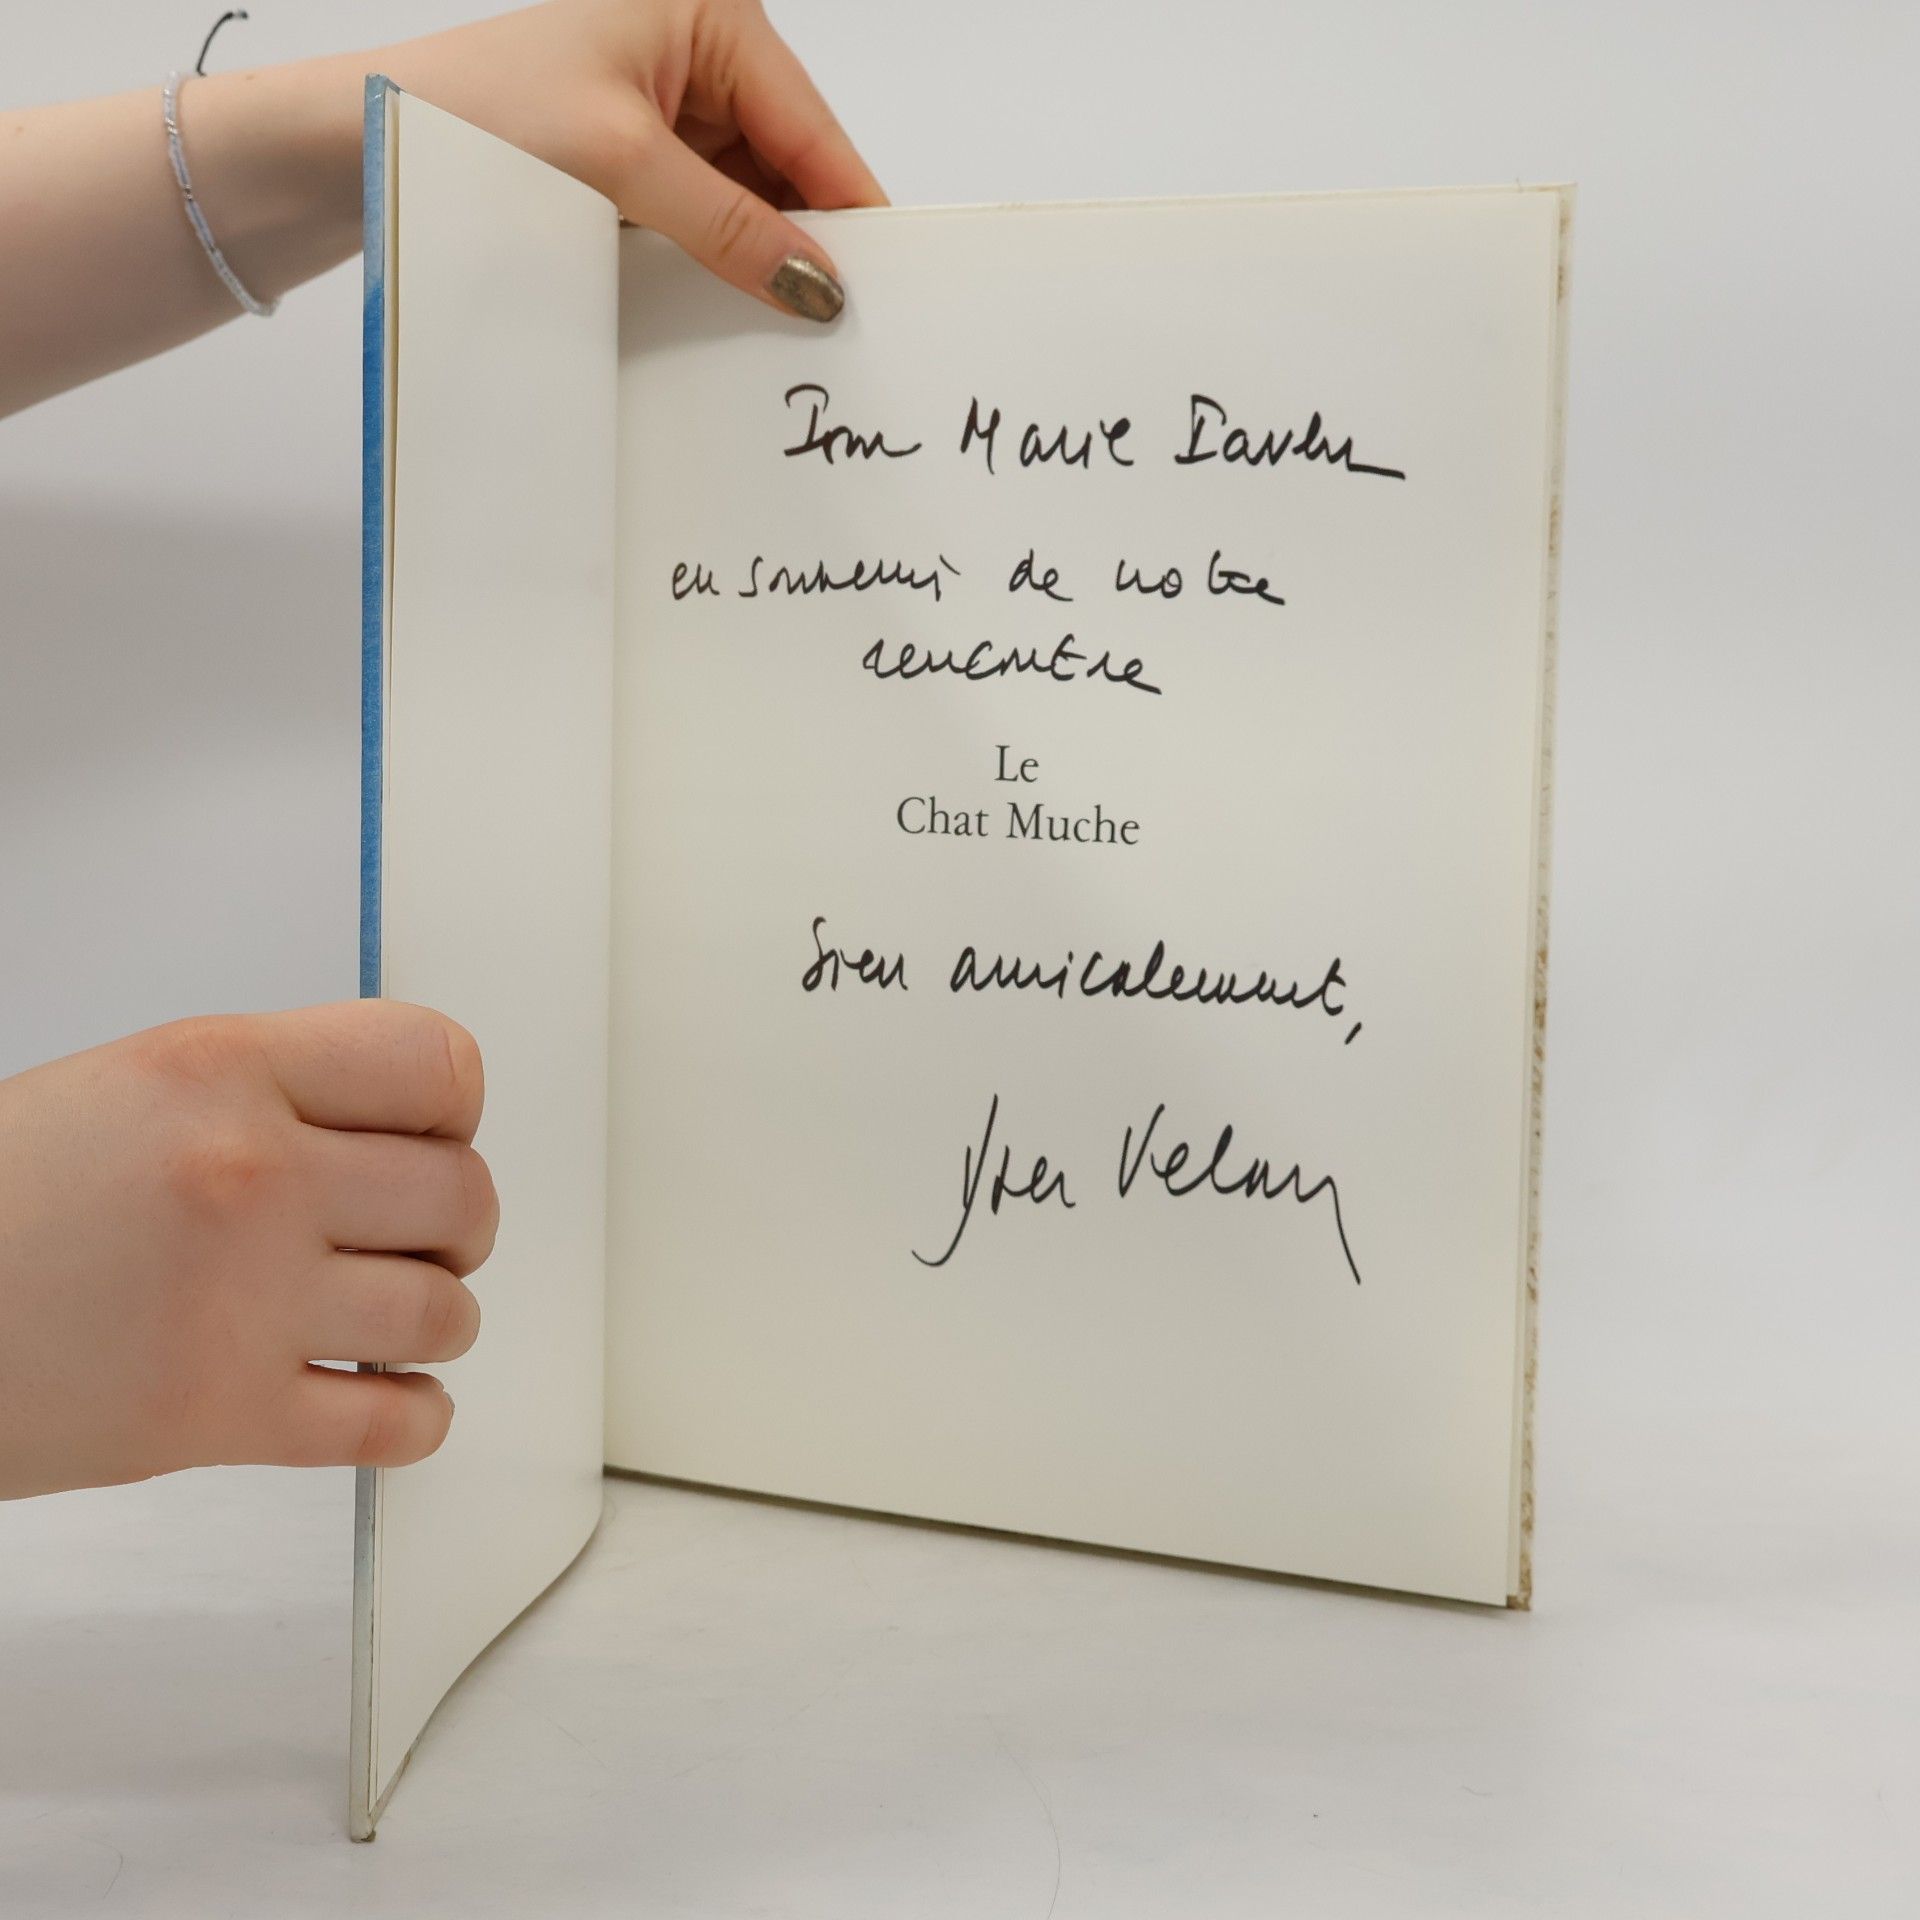 Pour Marie
en souvenir de notre
rencontre
Le
Chat Muche
Bien amicalement,
Yves Velan